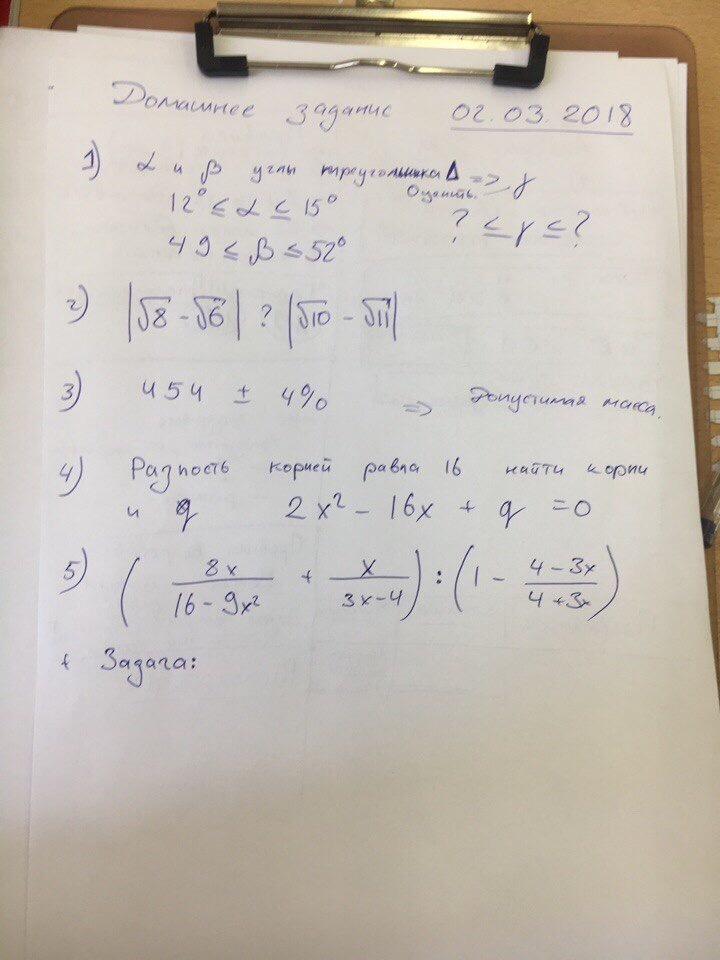 Домашнее задание 02.03.2018
1) α и β углы треугольника Δ => γ
Оценить.
12° ≤ α ≤ 15° ? ≤ γ ≤ ?
49 ≤ β ≤ 52°
2) |√8 - √6| ? |√10 - √11|
3) 454 ± 4% => Допустимая масса.
4) Разность корней равна 16 найти корни
и q 2x² - 16x + q = 0
5) (8x/(16 - 9x²) + x/(3x - 4)) : (1 - (4 - 3x)/(4 + 3x))
+ Задача: